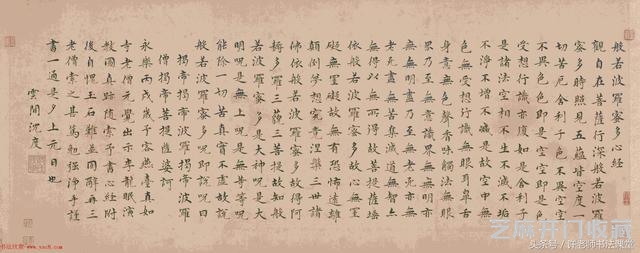 般若波羅蜜多心經
觀自在菩薩行深般若波羅
蜜多時照見五蘊皆空度一
切苦厄舍利子色不異空空
不異色色即是空空即是色
受想行識亦復如是舍利子
是諸法空相不生不滅不垢
不淨不增不減是故空中無
色無受想行識無眼耳鼻舌
身意無色聲香味觸法無眼
界乃至無意識界無無明亦
無無明盡乃至無老死亦無
老死盡無苦集滅道無智亦
無得以無所得故菩提薩埵
依般若波羅蜜多故心無罣
礙無罣礙故無有恐怖遠離
顛倒夢想究竟涅槃三世諸
佛依般若波羅蜜多故得阿
耨多羅三藐三菩提故知般
若波羅蜜多是大神呪是大
明呪是無上呪是無等等呪
能除一切苦真實不虛故說
般若波羅蜜多呪即說呪曰
揭帝揭帝波羅揭帝波羅
僧揭帝菩提薩婆訶
永樂丙戌歲予客燕臺真如
寺老僧元覺出示李龍眠演
教圖真跡隨索予書心經附
後自愧玉石難並固辭再三
老僧索之甚篤勉強淨手謹
書一通是夕上元日也
雲間沈度
芝麻开门收藏
头条号/许老师书法课堂